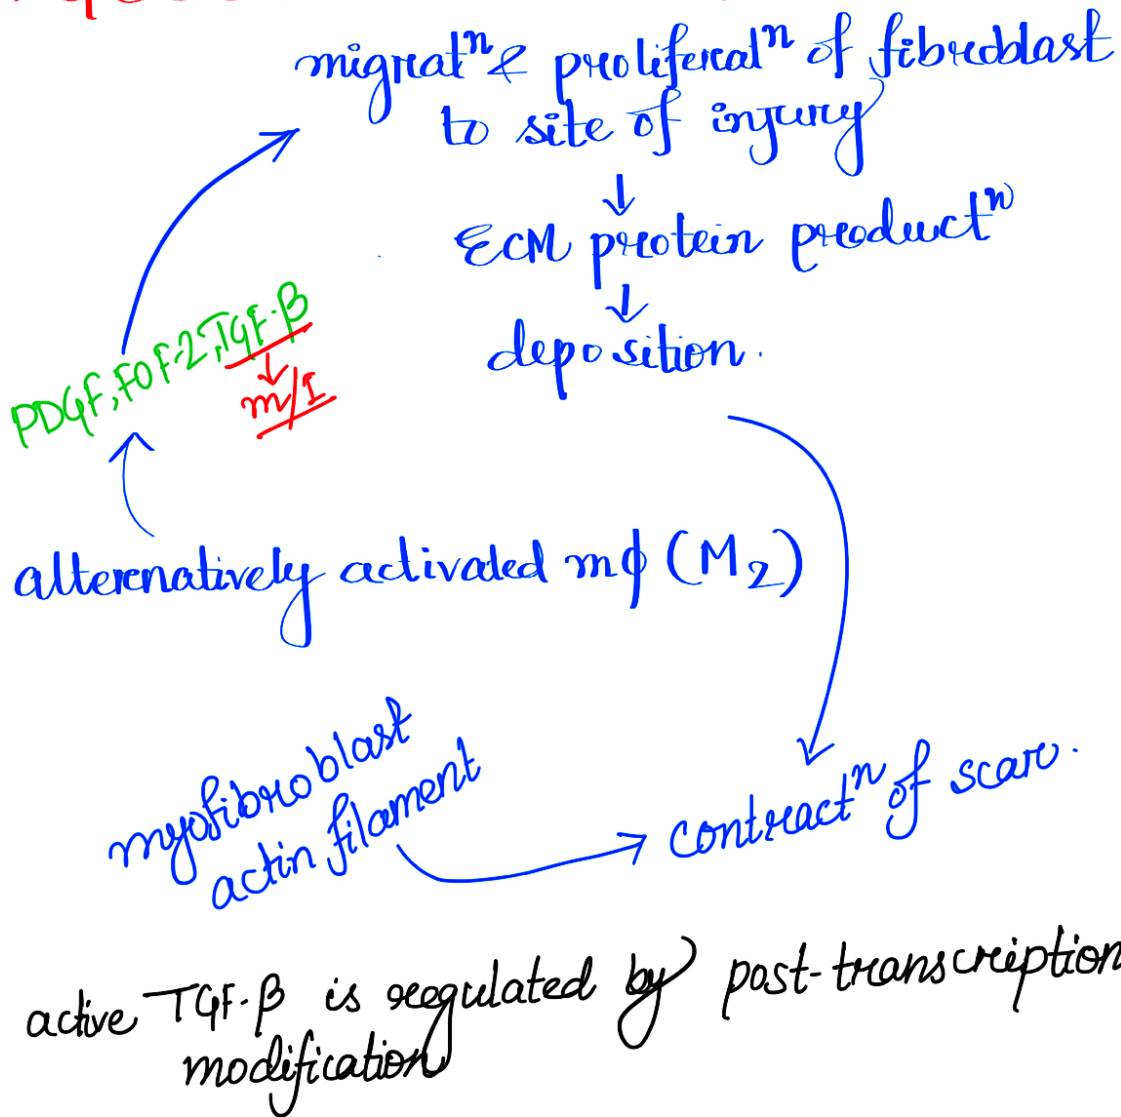 migratⁿ & proliferatⁿ of fibroblast
to site of injury
↓
ECM protein productⁿ
↓
deposition.
PDGF, FGF-2, TGF-β
↓
m/I
alternatively activated mϕ (M₂)
myofibroblast
actin filament
contractⁿ of scar.
active TGF-β is regulated by post-transcription
modification